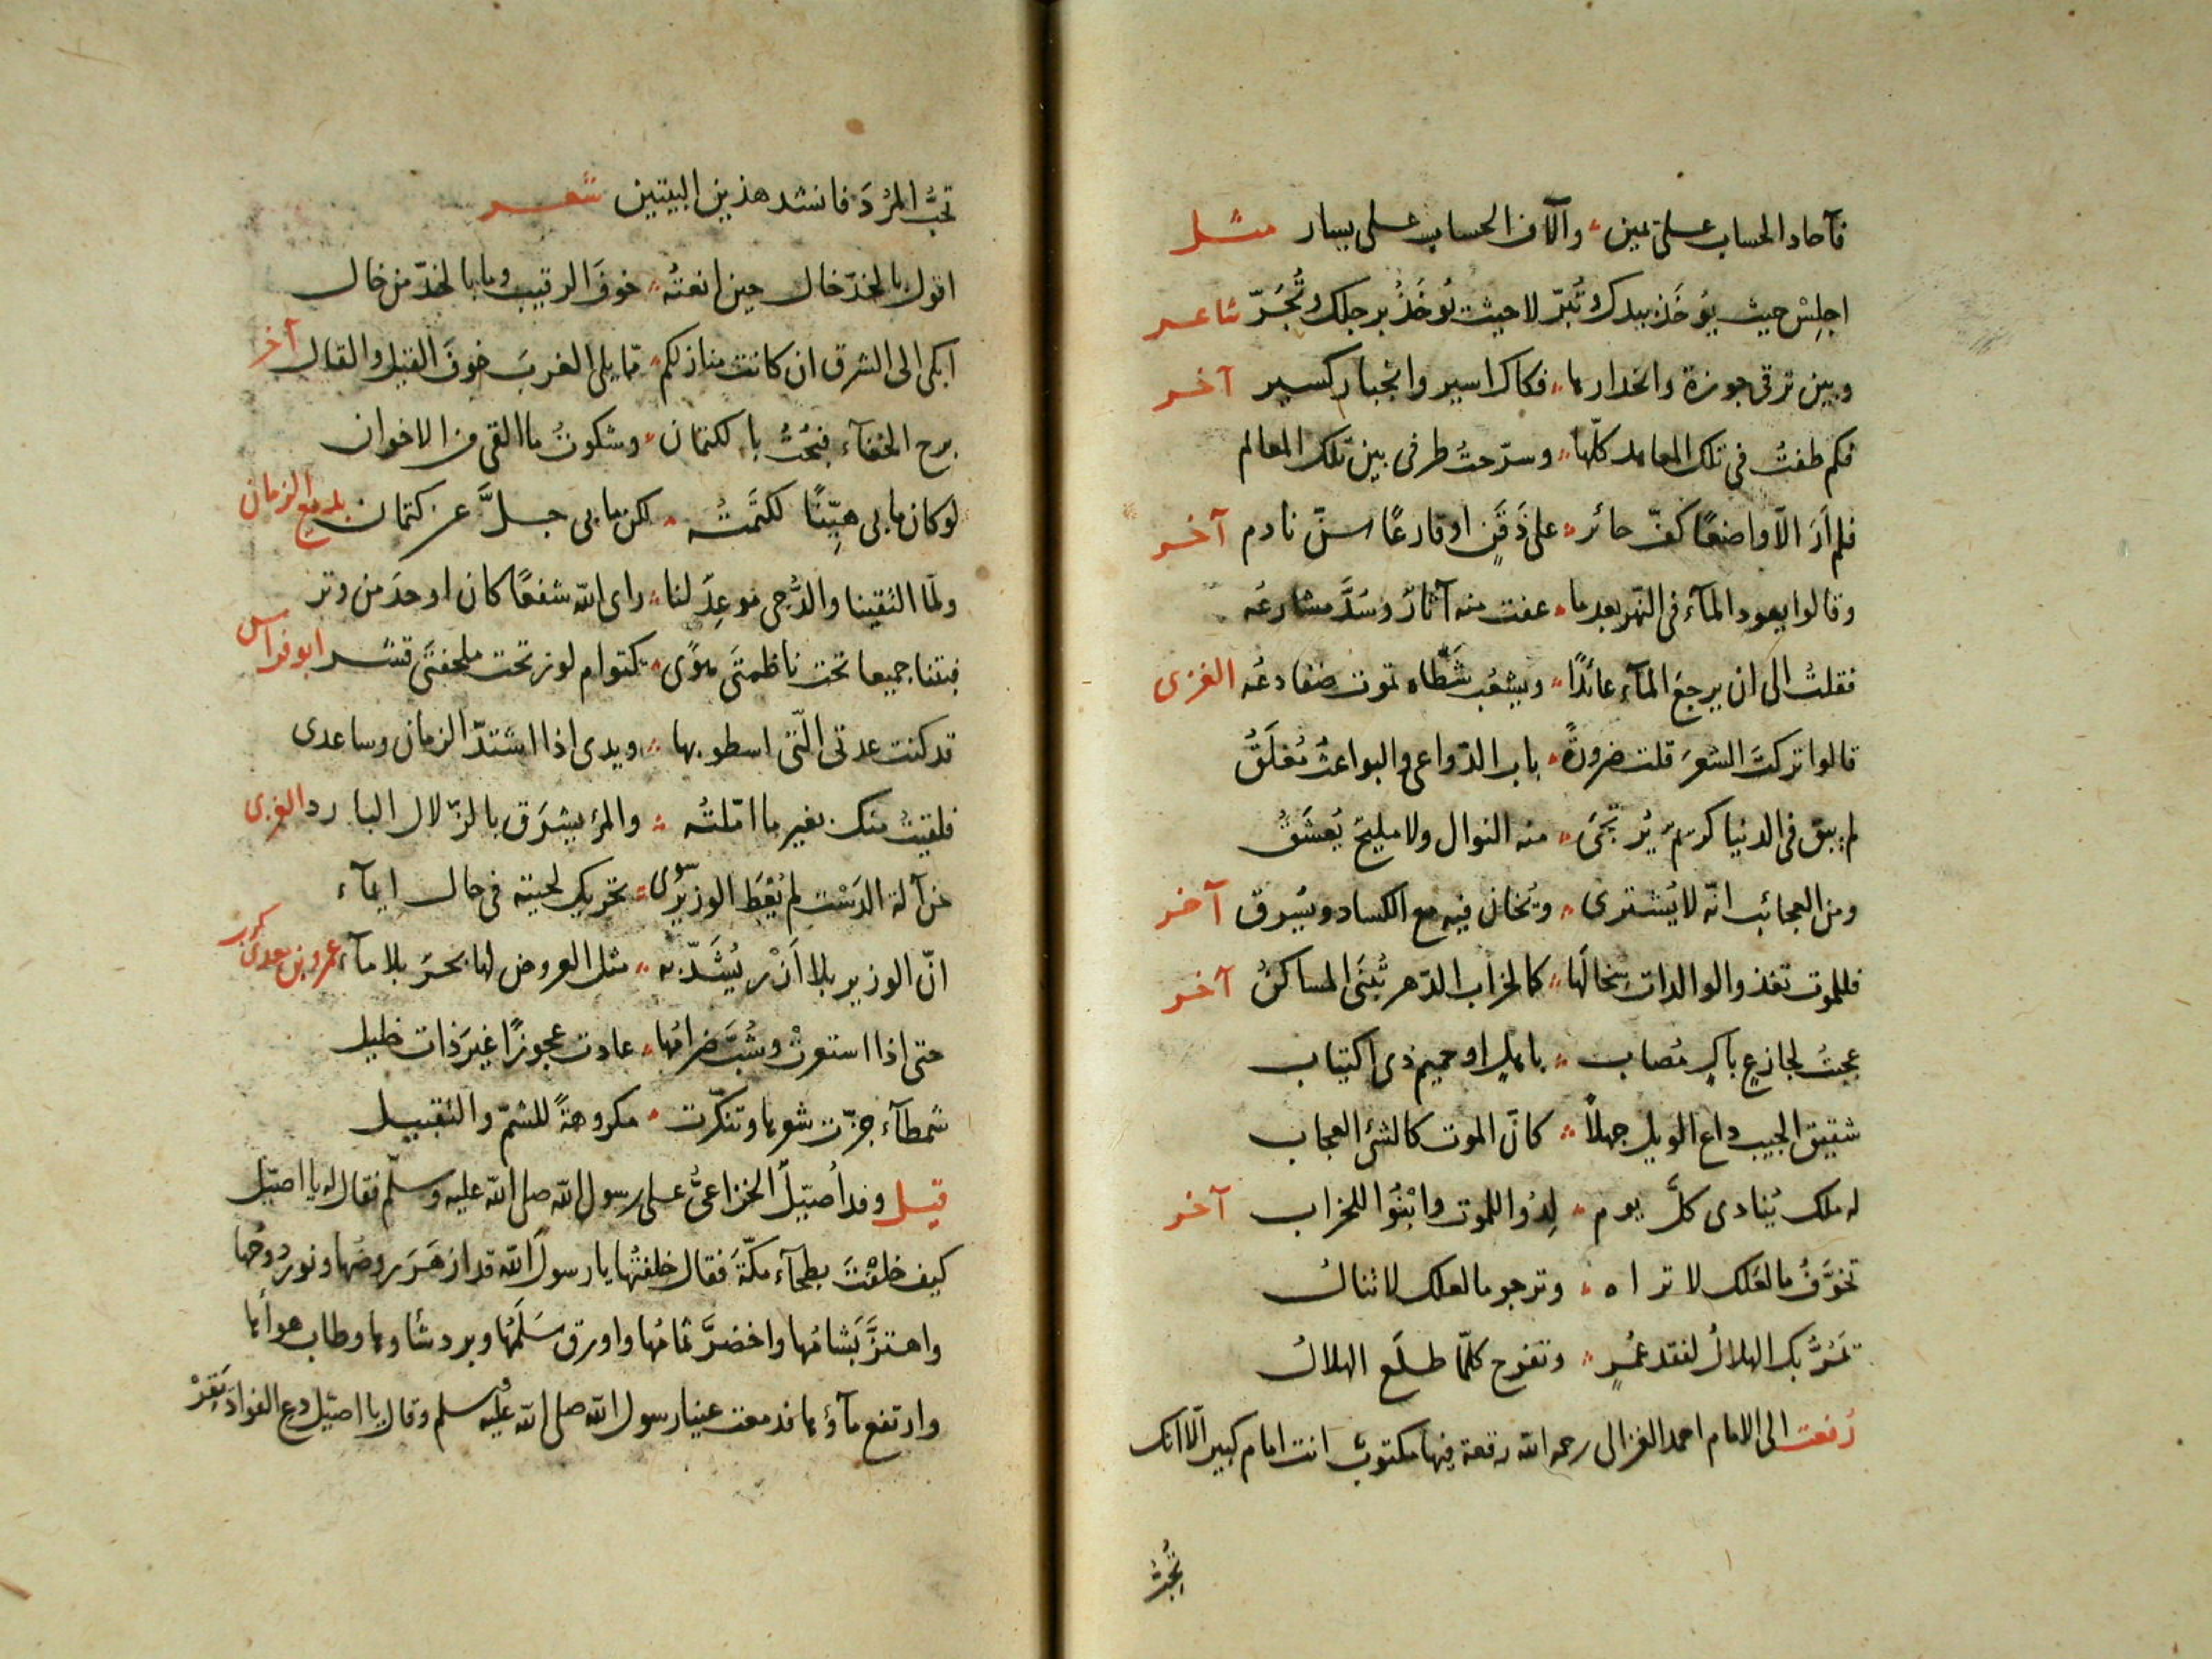 فآحاد الحساب على يمين وآلاف الحساب على يسار مثل
اجلِسْ حيث يُؤخَذ بيدك وتُبَرّ لا حيث يُؤخَذُ برجلك وتُجَرّ شاعر
وبين ترقى جوزة وانحدارها فكاك اسير وانجبار كسير آخر
فكم طفتُ في تلك المعاهد كلّها وسرّحتُ طرفى بين تلك المعالم
فلم اَرَ الّا واضعًا كفّ حائر على ذَقَنٍ او قارعًا سنّ نادم آخر
وقالوا يعود المآء في النّهر بعد ما عفت منه آثارٌ وسُدَّ مشارعُه
فقلتُ الى ان يرجعَ المآء عائدًا ويُشعُب شَطّاه تموت ضفادعُه الغزى
قالوا تركتَ الشعرَ قلت ضرورةً باب الدّواعى والبواعثُ مُغلَقٌ
لم يبق في الدنيا كريمٌ يُرتجَىٰ منه النوال ولا مليحٌ يُعشَقُ
ومن العجائب انّه لا يُشترى ويُخان فيه مع الكساد ويُسرق آخر
فللموت تغذوا الوالدات سِخالَها كما لخراب الدّهر تُبنَى المساكنُ آخر
عجبتُ لجازعٍ باكٍ مُصاب باهلٍ او حميم ذى اكتياب
شقيق الجيب داع الويل جهلًا كانّ الموت كالشئ العجاب
له ملك يُنادى كلَّ يوم لِدُوا للموت وابْنُوا للخراب آخر
تخوَّفُ ما لعَلك لا تراه وترجو ما لعلك لا تنالُ
تمُرُّ بك الهلالُ لفقد عُمرٍ وتفرح كلّما طلَع الهلالُ
رُفعت الى الامام احمد الغزالى رحمه الله رقعة فيها مكتوب انت امام كبير الّا انّك
تُحِبُّ
تحبُّ المُرْدَ فانشد هذين البيتين شعر
اقول بالخدّ خال حين انعتُه خوفَ الرقيب وما بالخدّ من خال
ابكى الى الشرق ان كانت منازلكم ممّا يلى الغربَ خوفَ القيل والقال آخر
برح الخفآء فبُحْتُ بالكتمان وشكوتُ ما القى من الاخوان
لو كان ما بى هيّنًا لكتمتُه لكن ما بى جلَّ عن كتمان بديع الزمان
ولمّا التقينا والدُّجى موعِدٌ لنا راى الله شفعًا كان اوحدَ من وتر
فبتنا جميعا تحت ناظمتَى هوًى كتوام لوز تحت ملحفتَى قشر ابو فراس
قد كنت عدتى الّتى اسطو بها ويدى اذا اشتدّ الزمان وساعدى
فلقيتُ منك بغير ما امّلتُه والمرءُ يشرَق بالزّلال البارد الغزى
من آلة الدَسْت لم يُعْطَ الوزيرُ سوى تحريك لحيته في حال ايمآء
انّ الوزير بلا اَزْرٍ يُشَدّ به مثل العروض لها بحرٌ بلا مآء عمرو بن معدى كرب
حتى اذا استعرتْ وشُبّ ضرامُها عادت عجوزًا غيرَ ذات خليل
شمطآء جزّت شعرها وتنكّرت مكروهةً للشمّ والتقبيل
قيل وفد أُصيّلٌ الخزاعىُّ على رسول الله صلى الله عليه وسلّم فقال له يا اصيّل
كيف خلفْتَ بطحآء مكّةَ فقال خلفتُها يا رسول الله قد ازهَرَ روضُها ونور دوحُها
واهتزَّ بَشامُها واخضرَّ ثمامُها واورق سَلَمُها وبرد شاوها وطاب هوائها
وارتفع مآؤها فدمعت عينا رسول الله صلى الله عليه وسلم وقال يا اصيّل دع الفواد يَقِرْ